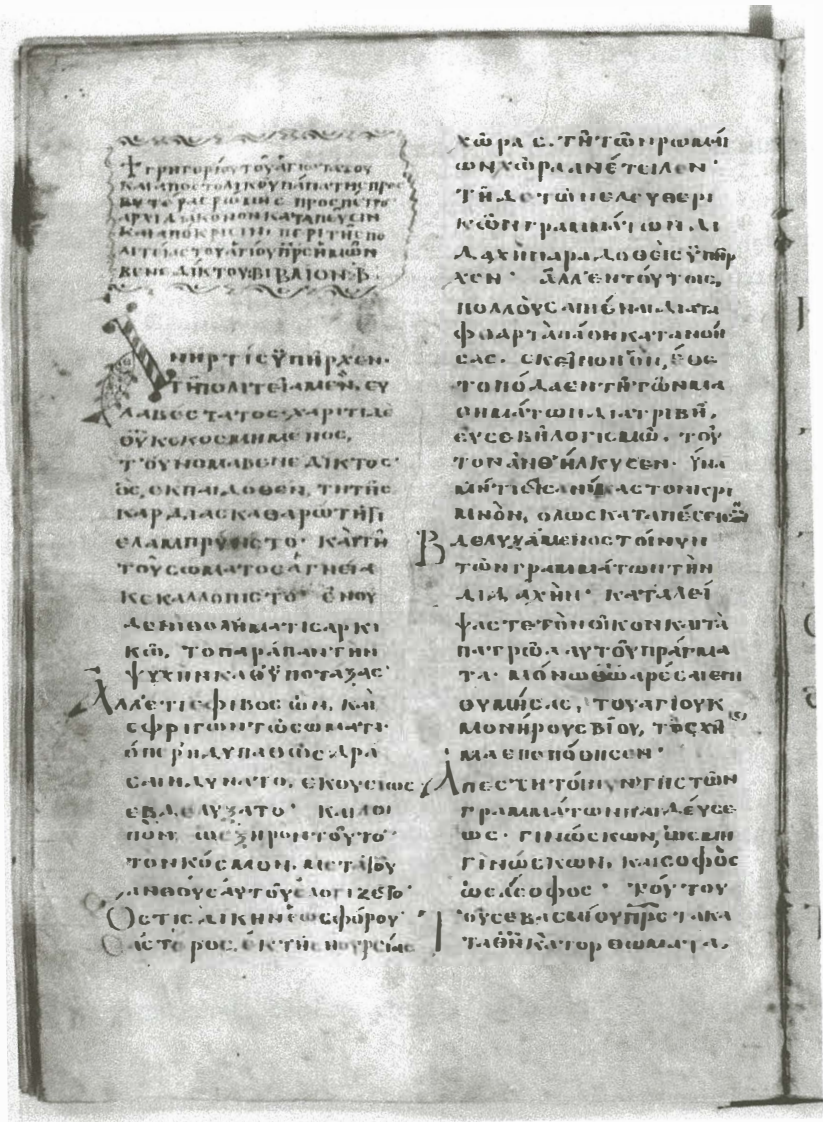 ΓΡΗΓΟΡΙΟΥ ΤΟΥ ΑΓΙΩΤΑΤΟΥ
ΚΑΙ ΑΠΟΣΤΟΛΙΚΟΥ ΠΑΠΑ ΤΗΣ ΠΡΕΣ
ΒΥΤΕΡΑΣ ΡΩΜΗΣ ΠΡΟΣ ΠΕΤΡΟ
ΑΡΧΙΔΙΑΚΟΝΟΝ ΚΑΤΑ ΠΕΥΣΙΝ
ΚΑΙ ΑΠΟΚΡΙΣΙΝ ΠΕΡΙ ΤΗΣ ΠΟ
ΛΙΤΕΙΑΣ ΤΟΥ ΑΓΙΟΥ ΠΡΣ ΗΜΩΝ
ΒΕΝΕΔΙΚΤΟΥ ΒΙΒΛΙΟΝ Β
Ἀνήρ τίς ὑπῆρχεν·
τῇ πολιτεία μὲν, εὐ
λαβέστατος· χάριτι δὲ
θυ κεκοσμημένος,
τ' οὔνομα βενέδικτος·
ὃς, ἐκπαιδόθεν, τῆ τῆς
καρδίας καθαρώτητι
ἐλαμπρύνετο· καὶ τῆ
τοῦ σώματος ἁγνεία
κεκαλλόπιστο·
δενὶ θελήματι σαρκι
κῶ, τὸ παράπαν τὴν
ψυχὴν καθϋποτάξας·
Ἀλλ' ἔτι ἔφιβος ὢν, καὶ
σφριγῶν τῶ σώματι·
ἅπερ ἡδυπαθῶς δρᾶ
σαι ἠδύνατο, ἑκουσίως
ἐβδελύξατο· καὶ λοι
πὸν, ὡς ξηρὸν τοῦτο
τὸν κόσμον, μετὰ τοῦ
ἄνθους αὐτοῦ ἐλογίζετο·
Ὅστις δίκην ἑωσφόρου
ἀστέρος, ἐκ τῆς νουρσίας
χώρας. τῆ τῶν ρωμαί
ων χώρα ἀνέτειλεν·
τῆ δὲ τῶν ἐλευθερι
κῶν γραμμάτων δι
δαχῆ παραδοθεὶς ὑπῆρ
χεν· ἀλλ' ἐν τούτοις,
πολλοὺς ἀπιέναι διὰ τὰ
φθαρτὰ πάθη κατανοή
σας. ἐκεῖνον ὃν, ἔθε
το πόδα ἐν τῆ τῶν μα
θημάτων διατριβῆ,
εὐσεβῆ λογισμῶ. τοῦ
τον ἀνθήλκυσεν· ἵνα
μήτι δικανίκας τὸν κρι
μνὸν, ὅλως καταπέσειεν
Βδελυξάμενος τοίνυν
τῶν γραμμάτων τὴν
διδαχὴν· καταλεί
ψας τε τὸν οἶκον καὶ τὰ
πατρῶα αὐτοῦ πράγμα
τα· μόνω θῶ ἀρέσαι ἐπι
θυμήσας, τοῦ ἁγίου κ
μονήρους βίου, τὸ σχῆ
μα ἐπεπόθησεν·
Ἀπέστη τοίνυν τῆς τῶν
γραμμάτων παιδεύσε
ως· γινώσκων, ὡς μὴ
γινώσκων, καὶ σοφὸς
ὡς ἄσοφος· τούτου
τοῦ σεβασμίου πρς τὰ κα
τὰ θν κατορθώματα,